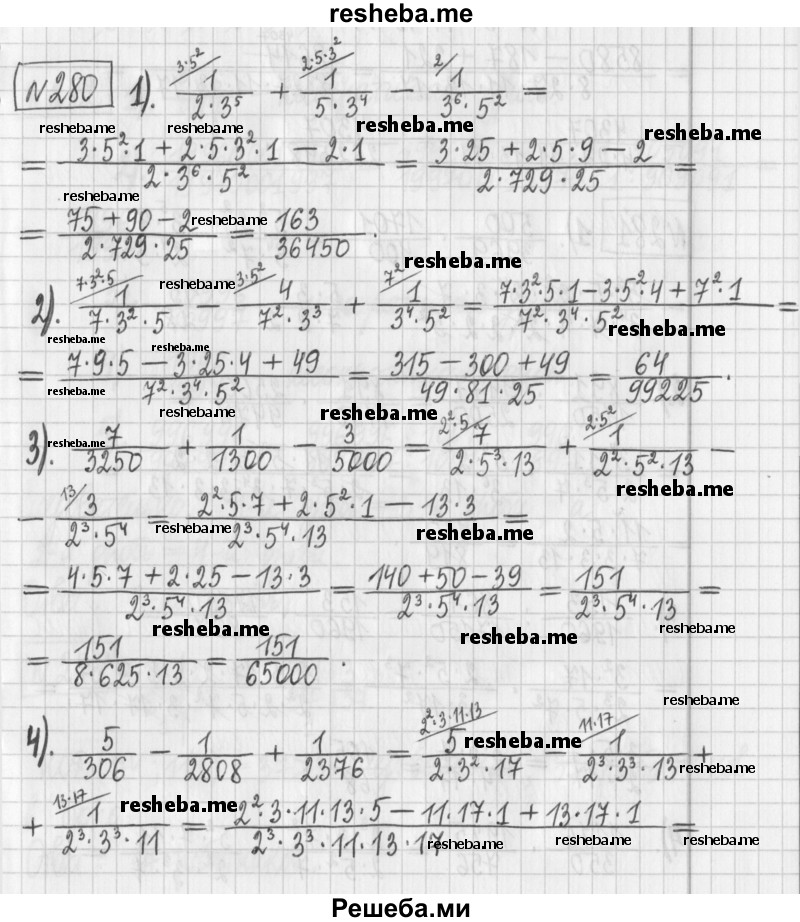 resheba.me
№280 1). 3·5²/ 1/(2·3⁵) + 2·5·3²/ 1/(5·3⁴) − 2/ 1/(3⁶·5²) =
resheba.me resheba.me resheba.me
resheba.me
= (3·5²·1 + 2·5·3²·1 − 2·1)/(2·3⁶·5²) = (3·25 + 2·5·9 − 2)/(2·729·25) =
resheba.me
= (75 + 90 − 2)/(2·729·25) = 163/36450.
resheba.me
resheba.me
2). 7·3²·5/ 1/(7·3²·5) − 3·5²/ 4/(7²·3³) + 7²/ 1/(3⁴·5²) = (7·3²·5·1 − 3·5²·4 + 7²·1)/(7²·3⁴·5²) =
resheba.me
resheba.me resheba.me
resheba.me
= (7·9·5 − 3·25·4 + 49)/(7²·3⁴·5²) = (315 − 300 + 49)/(49·81·25) = 64/99225.
resheba.me
resheba.me resheba.me
3). 7/3250 + 1/1300 − 3/5000 = 2²·5/ 7/(2·5³·13) + 2·5²/ 1/(2²·5²·13) −
resheba.me resheba.me
resheba.me
− 13/ 3/(2³·5⁴) = (2²·5·7 + 2·5²·1 − 13·3)/(2³·5⁴·13) =
resheba.me resheba.me
= (4·5·7 + 2·25 − 13·3)/(2³·5⁴·13) = (140 + 50 − 39)/(2³·5⁴·13) = 151/(2³·5⁴·13) =
resheba.me resheba.me resheba.me
= 151/(8·625·13) = 151/65000.
resheba.me
4). 5/306 − 1/2808 + 1/2376 = 2²·3·11·13/ 5/(2·3²·17) − 11·17/ 1/(2³·3³·13) +
resheba.me
resheba.me
+ 13·17/ 1/(2³·3³·11) = (2²·3·11·13·5 − 11·17·1 + 13·17·1)/(2³·3³·11·13·17) =
resheba.me
resheba.me resheba.me resheba.me
Решеба.ми